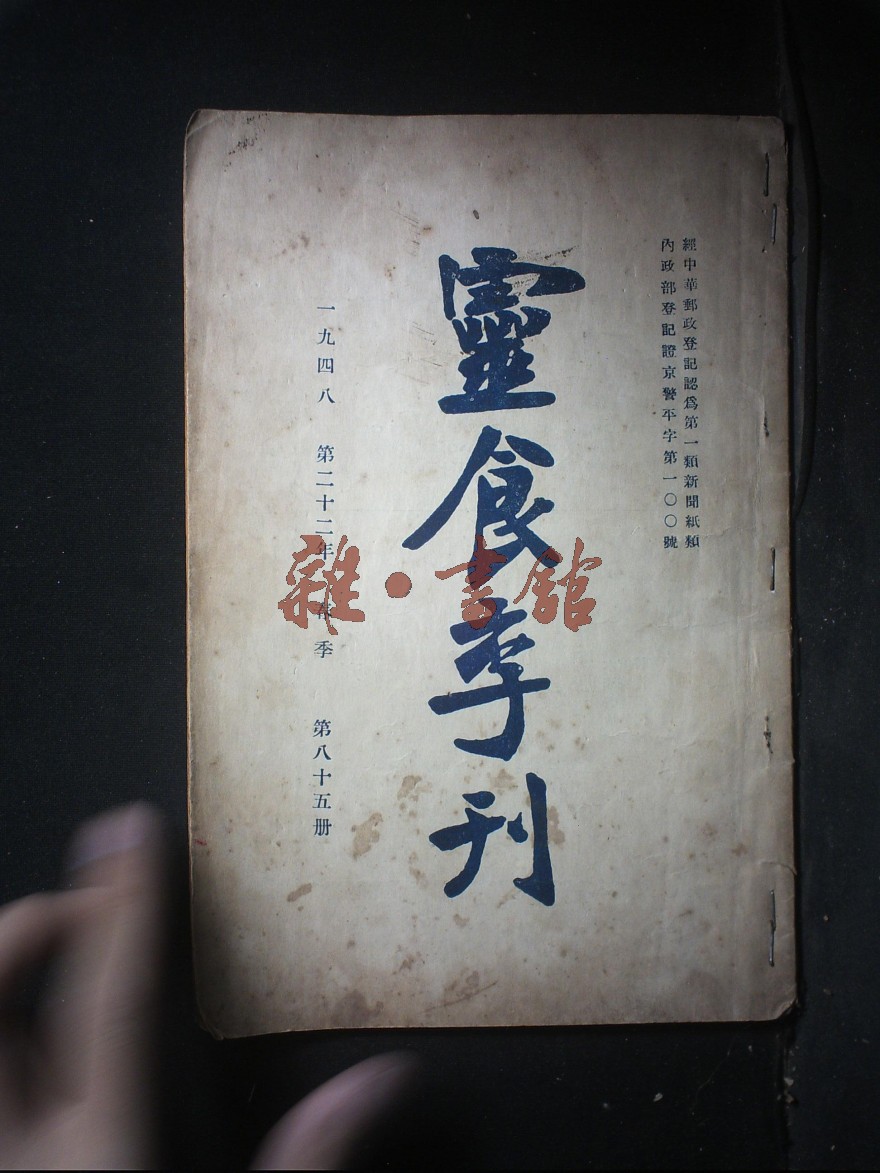 經中華郵政登記認爲第一類新聞紙類
內政部登記證京警平字第一〇〇號
靈食季刊
一九四八 第二十二年 春季 第八十五册
雜·書館